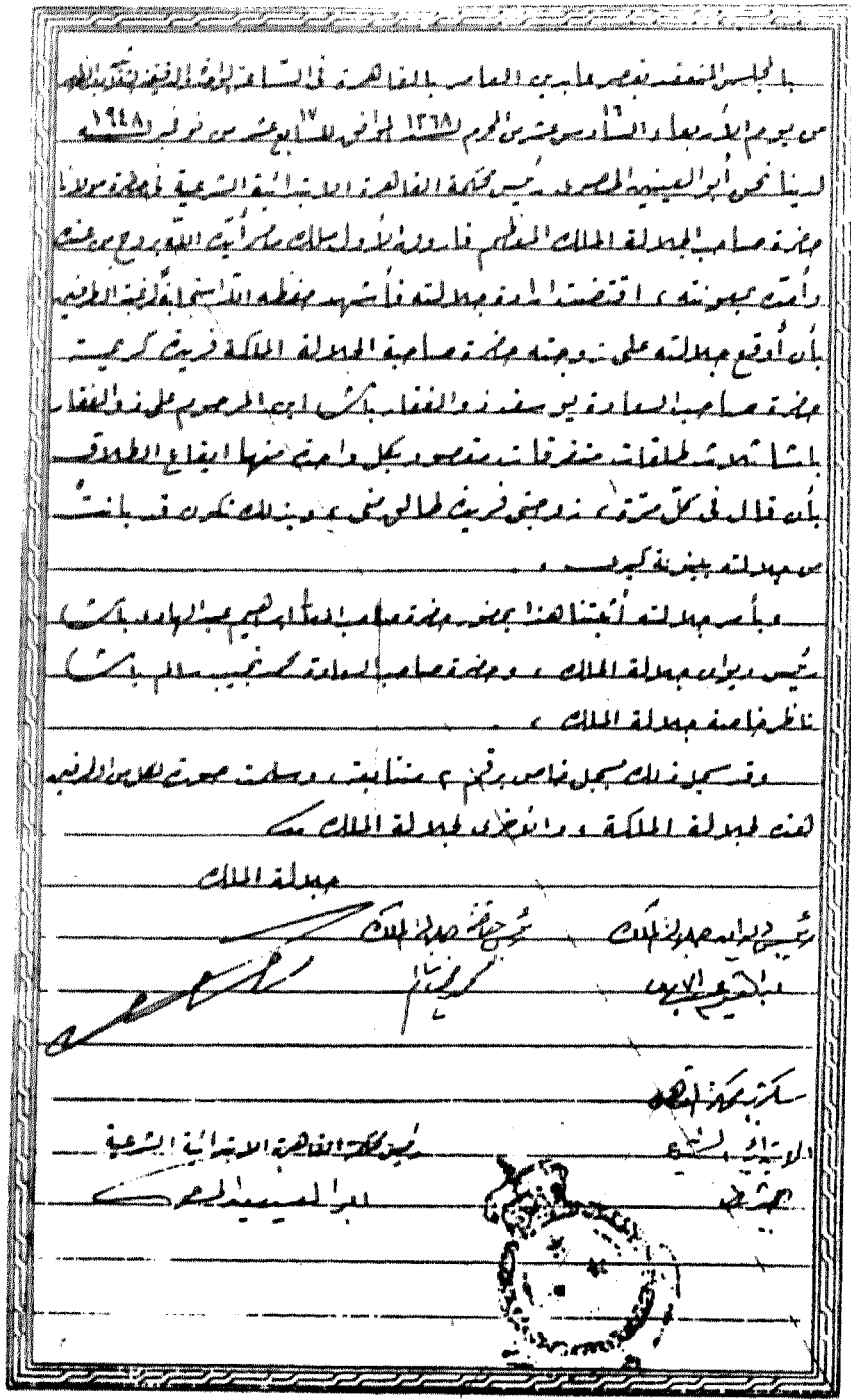 بالمجلس المنعقد بقصر عابدين العامر بالقاهرة فى الساعة الواحدة
من يوم الأربعاء السادس عشر ١٦ من المحرم لسنة ١٣٦٨ الموافق للسابع عشر ١٧ من نوفمبر لسنة ١٩٤٨
لدينا نحن أبو العينين رئيس محكمة القاهرة الابتدائية الشرعية مولانا
حضرة صاحب الجلالة الملك المعظم فاروق الأول ملك مصر أيده الله بروح من عنده
وأمده بمعونته ، اقتضت ارادة جلالته فأشهد حفظه الله استجابة لرغبة الطرفين
بأن أوقع جلالته على زوجته حضرة صاحبة الجلالة الملكة فريدة كريمة
حضرة صاحب السعادة يوسف ذو الفقار باشا ابن المرحوم على ذو الفقار
باشا ثلاث طلقات متفرقات مقصود بكل واحدة منها ايقاع الطلاق
بأن قال فى كل مرة ، زوجتى فريدة طالق منى ، وبذلك تكون قد بانت
من جلالته بينونة كبرى .
وبأمر جلالته أثبتنا هذا بحضور حضرة صاحب ابراهيم عبد الهادى باشا
رئيس ديوان جلالة الملك ، وحضرة صاحب السعادة محمد نجيب سالم باشا
ناظر خاصة جلالة الملك ،
وقد سجل ذلك بسجل خاص برقم ٢ متتابعة ، وسلمت صورة لكل من الطرفين
هذه لجلالة الملكة ، والأخرى لجلالة الملك
جلالة الملك
رئيس ديوان جلالة الملك جلالة الملك
ابراهيم عبد الهادى محمد نجيب سالم
سكرتير محكمة القاهرة
الابتدائية الشرعية رئيس محكمة القاهرة الابتدائية الشرعية